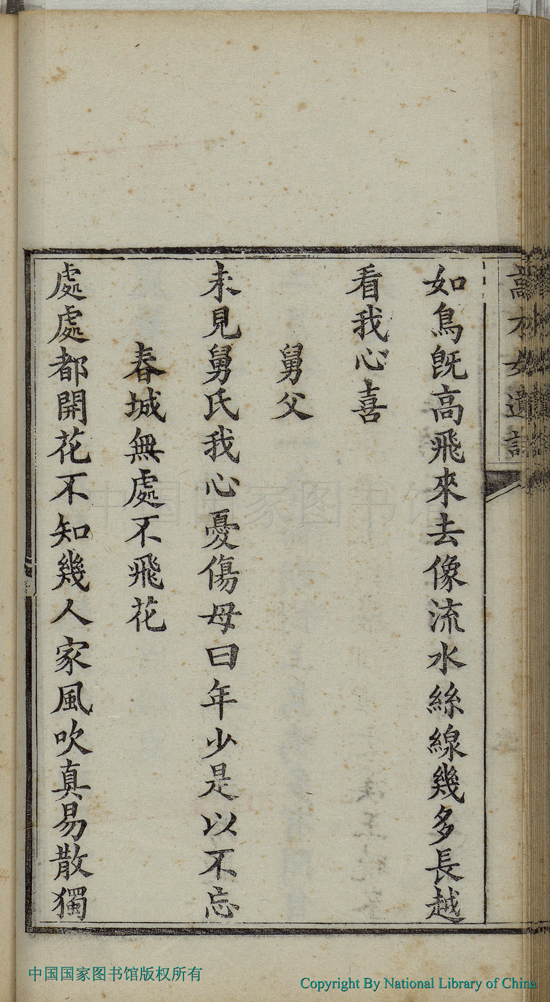 如鳥旣高飛來去像流水絲線幾多長越
看我心喜
舅父
未見舅氏我心憂傷母曰年少是以不忘
春城無處不飛花
處處都開花不知幾人家風吹真易散獨
中国国家图书馆
中国国家图书馆版权所有
Copyright By National Library of China